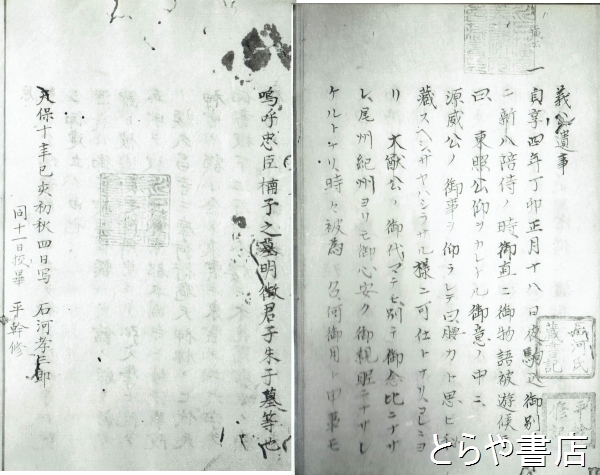 義公遺事
一貞享四年丁卯正月十八日夜駒込御別
ニ新八陪侍ノ時御直ニ御物語被遊候
曰東照公仰ヲカレトル御意ノ中ニ
源威公ノ御事ヲ仰ラレテ曰腰カト思ヒ
蔵スヘシサヤハシラサル様ニ可仕トナリコレニヨ
リ大猷公ノ御代マテモ別テ御念比ニナサ
レ尾州紀州ヨリモ御心安ク御親昵ニナサレ
ケルトナリ時々被為召何御用ト申事モ
嗚呼忠臣楠子之墓明徴君子朱子墓等也
天保十年己亥初秋四日写 石河孝三郎
同十一日校畢 平幹修
とらや書店